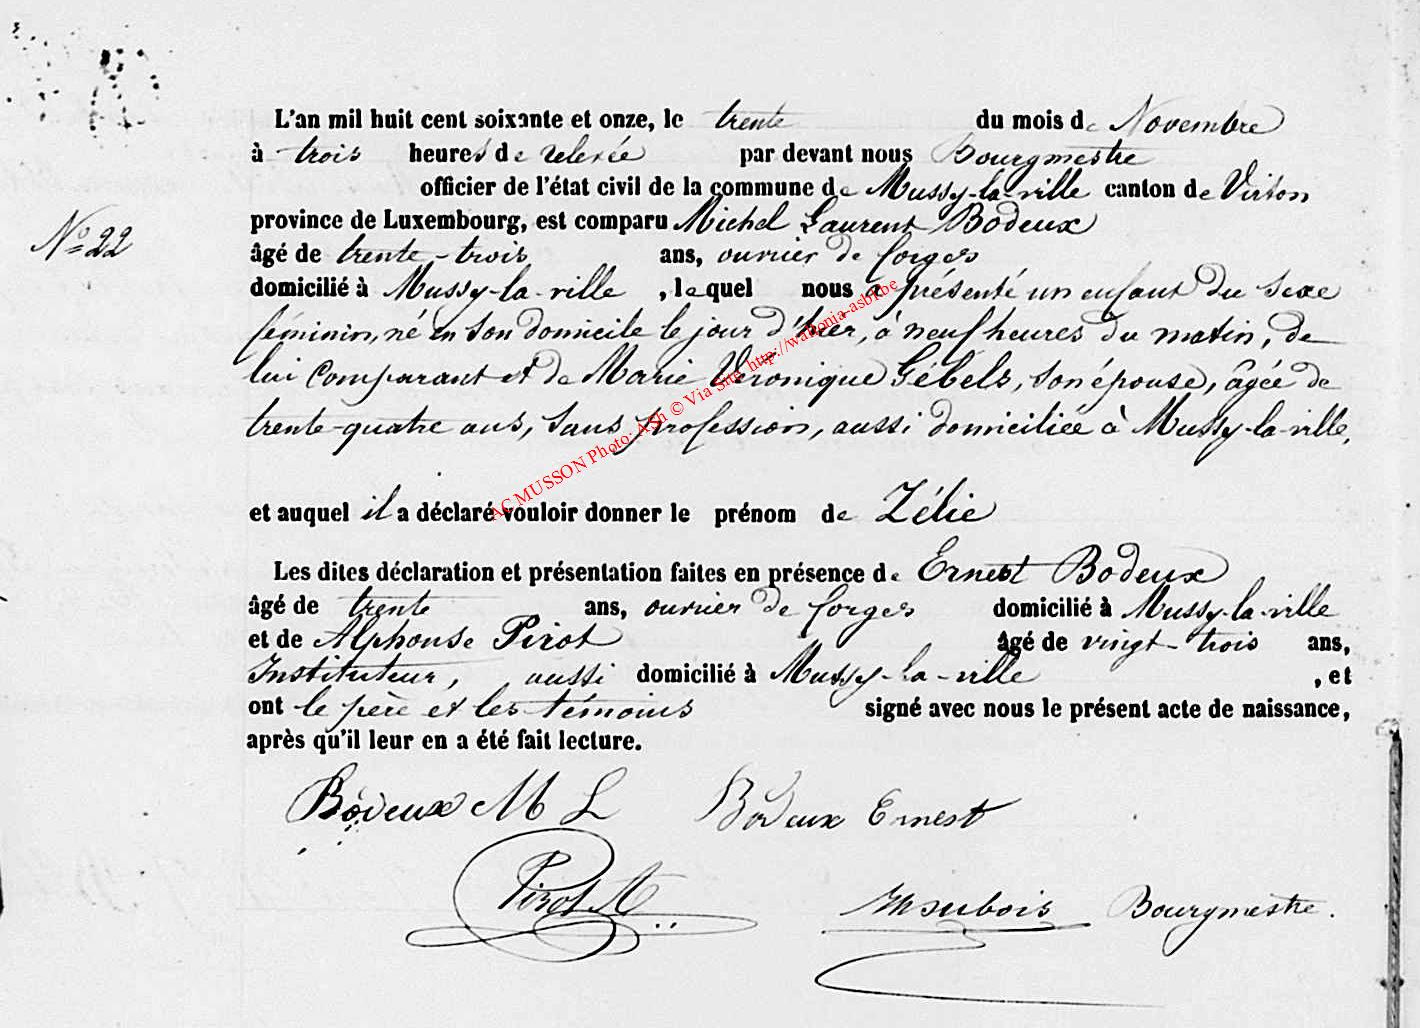 L'an mil huit cent soixante et onze, le trente du mois de Novembre
à trois heures de relevée par devant nous Bourgmestre
officier de l'état civil de la commune de Mussy-la-ville canton de Virton
province de Luxembourg, est comparu Michel Laurent Bodeux
N° 22
âgé de trente-trois ans, ouvrier de forges
domicilié à Mussy-la-ville, lequel nous a présenté un enfant du sexe
féminin, né en son domicile le jour d'hier, à neuf heures du matin, de
lui Comparant et de Marie Véronique Gébels, son épouse, âgée de
trente-quatre ans, sans profession, aussi domiciliée à Mussy-la-ville,
et auquel il a déclaré vouloir donner le prénom de Zélie
Les dites déclaration et présentation faites en présence de Ernest Bodeux
âgé de trente ans, ouvrier de forges domicilié à Mussy-la-ville
et de Alphonse Pirot âgé de vingt-trois ans,
Instituteur, aussi domicilié à Mussy-la-ville, et
ont le père et les témoins signé avec nous le présent acte de naissance,
après qu'il leur en a été fait lecture.
Bodeux M L Bodeux Ernest
Pirot A Bourgmestre.
AC MUSSON Photo-ASh © Via Site http://wallonia-asbl.be